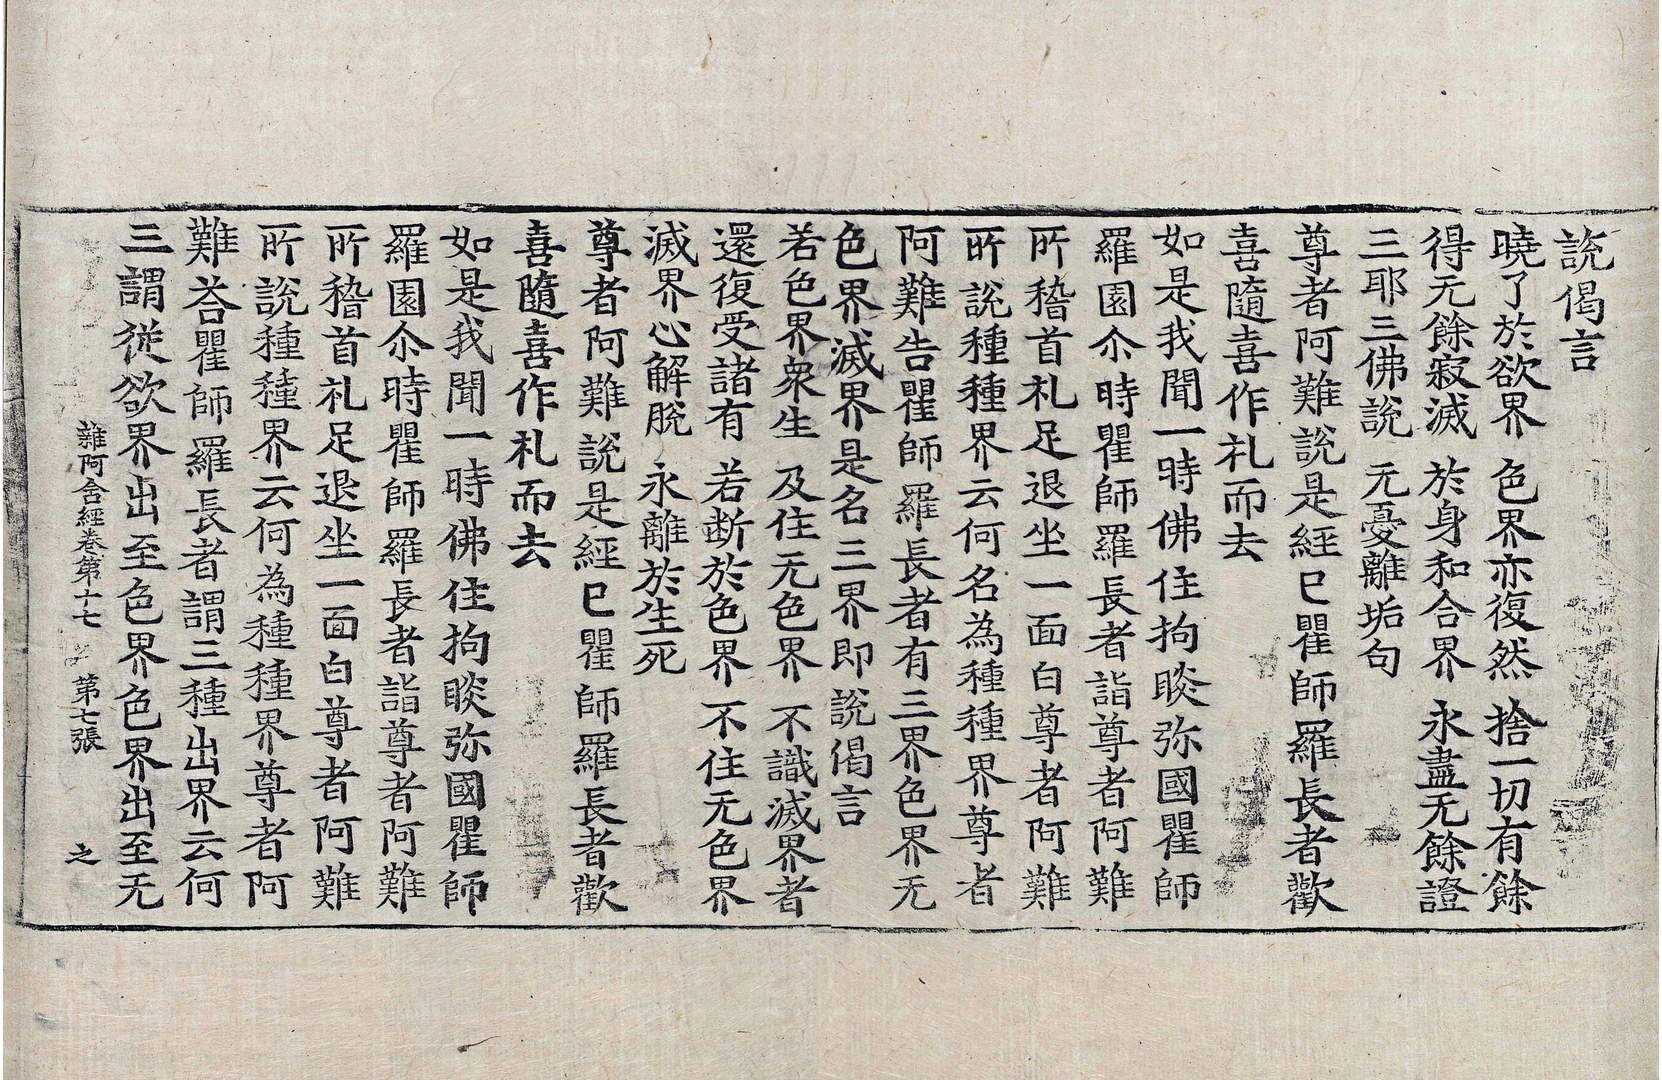 說偈言
曉了於欲界 色界亦復然 捨一切有餘
得无餘寂滅 於身和合界 永盡无餘證
三耶三佛說 无憂離垢句
尊者阿難說是經已瞿師羅長者歡
喜隨喜作礼而去
如是我聞一時佛住拘睒弥國瞿師
羅園尒時瞿師羅長者詣尊者阿難
所稽首礼足退坐一面白尊者阿難
所說種種界云何名為種種界尊者
阿難告瞿師羅長者有三界色界无
色界滅界是名三界即說偈言
若色界衆生 及住无色界 不識滅界者
還復受諸有 若断於色界 不住无色界
滅界心解脫 永離於生死
尊者阿難說是經已瞿師羅長者歡
喜隨喜作礼而去
如是我聞一時佛住拘睒弥國瞿師
羅園尒時瞿師羅長者詣尊者阿難
所稽首礼足退坐一面白尊者阿難
所說種種界云何為種種界尊者阿
難荅瞿師羅長者謂三種出界云何
三謂從欲界出至色界色界出至无
雜阿含經卷第十七 第七張 之